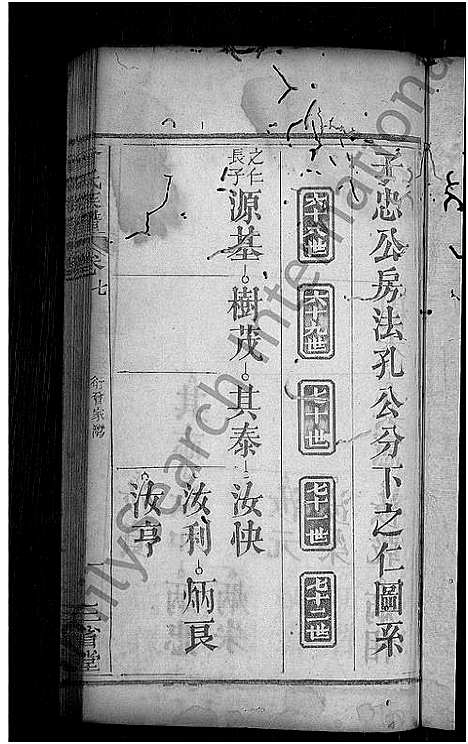 子忠公房法孔公分下之仁圖系
六十八世
六十九世
七十世
七十一世
七十二世
之仁
長子
源基
樹茂
其泰
汝快
汝利
炳良
汝亨
氏宗譜
卷七
三省堂
FamilySearch International